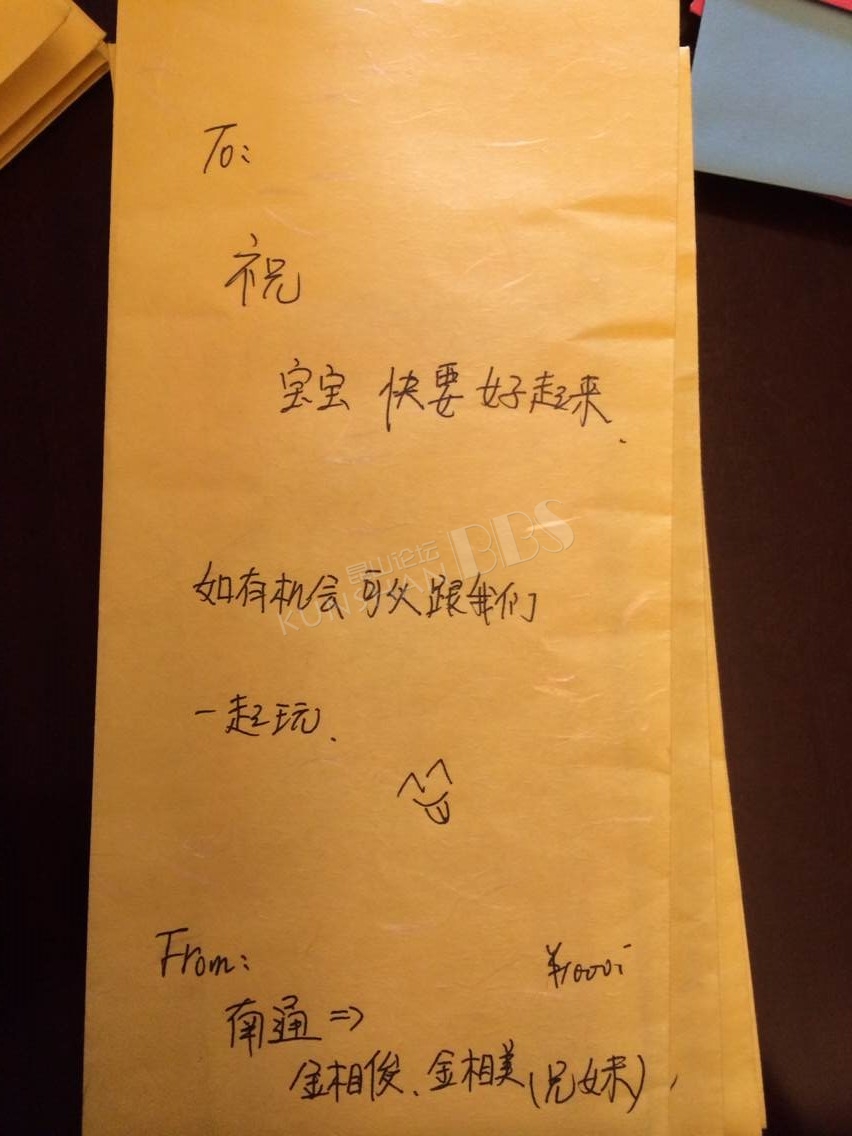 To:
祝
宝宝 快要 好起来.
昆山论坛
KUNSHAN BBS
如有机会可以跟我们
一起玩.
From:
¥1000
南通 =>
金相俊、金相美(兄妹)